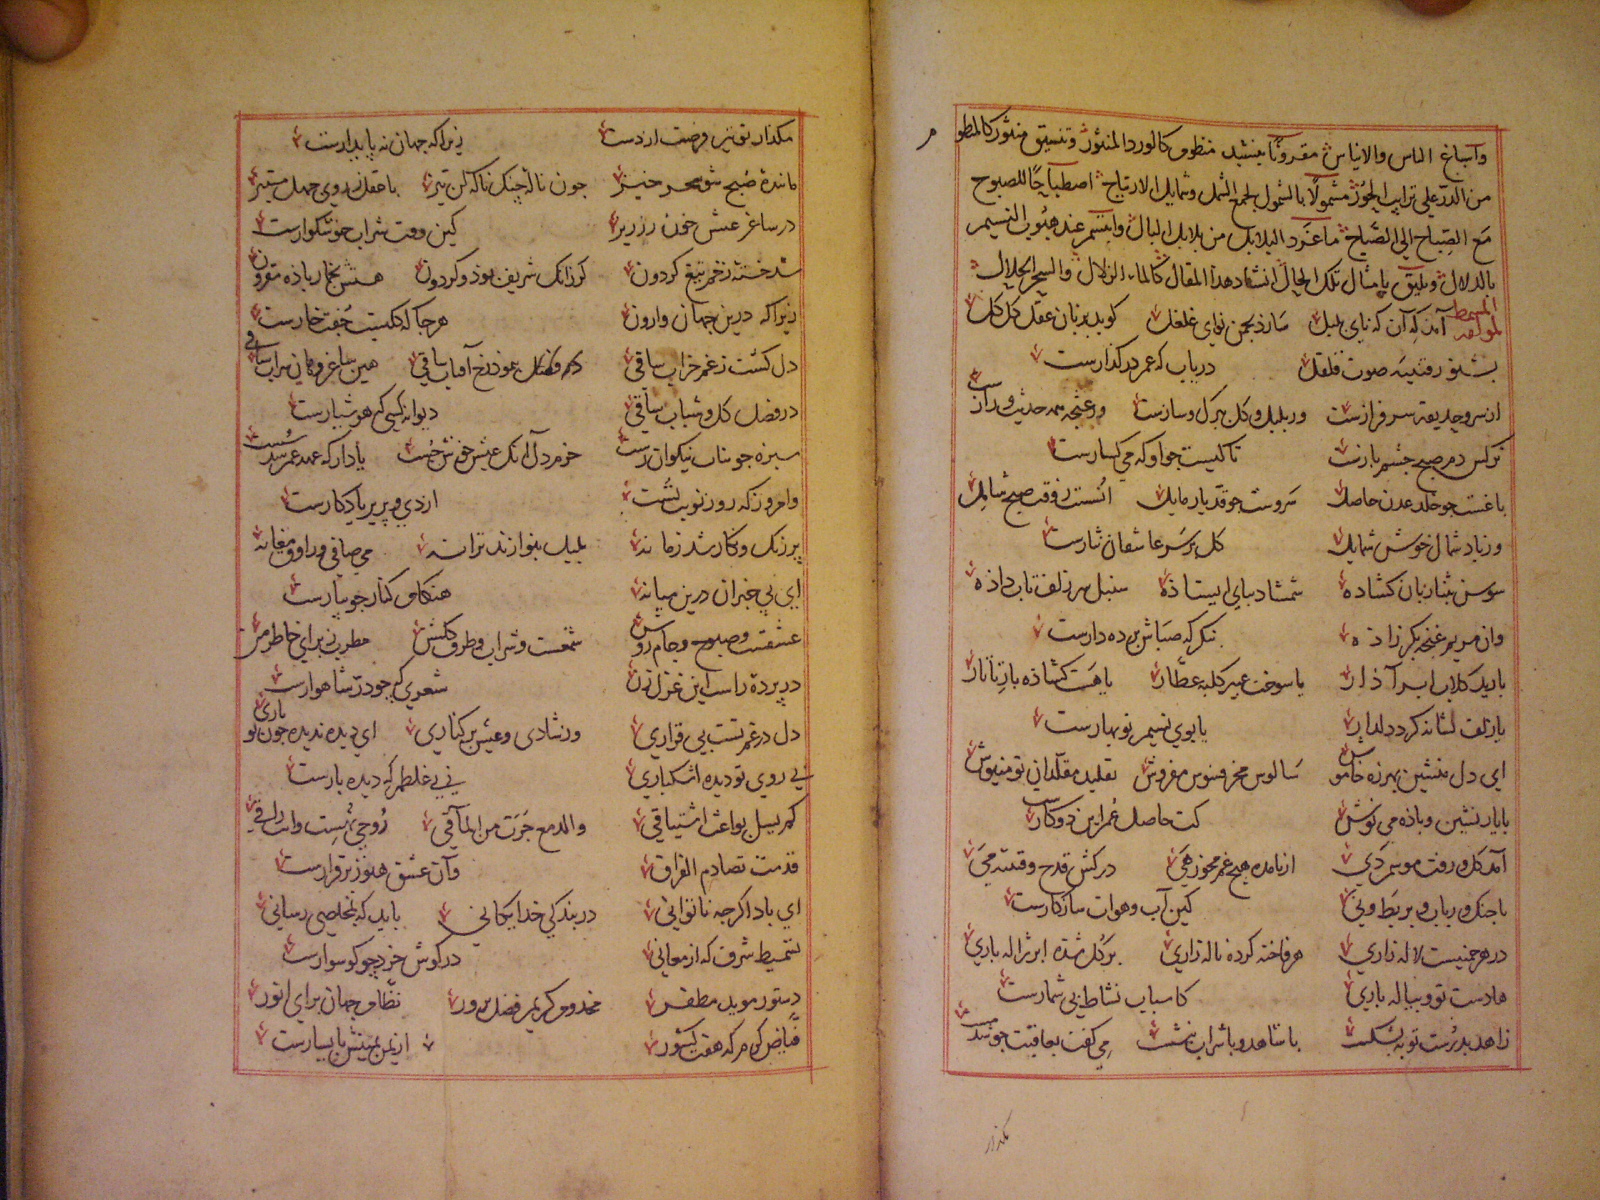 واسباغ الماس والایناس مقرونًا بنشید منظوم کالورد المنثور وتنسیق منثور کالمنظوم
من الدرّ علی ترایب الحور مشمولًا بالشمول لجمع الشمل وشمایل الارتیاح اصطباحًا للصبوح
مَع الصِّباح الی الصَّباح ما غرّد البلابل من بلابل البال وابتسم عند هبوب النسیم
بالدلال ویلیق بامثال تلک الحال انشاد هذا المقال کالماء الزلال والسحر الحلال
المسمط لمولفه آمد که آن که نای بلبل سازد بچمن نوای غلغل گوید بزبان عقل کل کل
بشنو ز قنینه صوت قلقل دریاب که عمر در گذارست
ان سرو حدیقه سرفرازست وز بلبل و گل ببرگ و سازست وز غنچه همه حدیث رازست
نرگس دم صبح چشم بازست تا کیست چو او که می گسارست
باغست چو خلد عدن حاصل سروست چو قدّ یار مایل انست ز وقت صبح شامل
وز باد شمال خوش شمایل گل بر سر عاشقان نثارست
سوسن بثنا زبان گشاده شمشاد بپای ایستاده سنبل سر زلف تاب داده
وان مریم غنچه بکر زاده بنگر که صباش پرده دارست
بارید گلاب ابر آذار یا سوخت عبیر کلبه عطّار یا هست گشاده بار تاتار
یا زلف بشانه کرد دلدار یا بوی نسیم نوبهارست
ای دل منشین بهرزه خاموش سالوس مخر فسوس مفروش تقلید مقلدان تو منیوش
با یار نشین و باده می نوش کت حاصل عمر این دو کارست
آمد گل و رفت موسم دی از نامده هیچ غم مخور هی درکش قدح و قنینه می
با چنگ و رباب و بربط و نی کین آب و هوات سازگارست
در هر چمنیست لاله زاری هر فاخته کرده ناله زاری بر گل شده ابر ژاله باری
هاد‌ست تو و پیاله باری کاسباب نشاط بی شمارست
زاهد بدرست توبه بشکست با شاهد و با شراب بنشست می گفت بعاقبت چو شد مست
مگذار
مگذار تو نیز فرصت از دست زیرا که جهان نه پایدارست
ماننده صبح شو سحر خیز چون ناله چنگ ناله کن تیز با عقل ز روی جهل مستیز
در ساغر عیش خون رز ریز کین وقت شراب خوشگوارست
شد خسته زخم تیغ گردون کز زانک شریف بود و گر دون هستش بخمار باده مقرون
زیرا که درین جهان وارون هر جا که گلیست جفت خارست
دل گشت ز غم خراب ساقی در ده بعوذنخ آفتاب ساقی هین ساغر و هان شراب ساقی
در فصل گل و شباب ساقی دیوانه کسی که هوشیارست
سبزه چو بناب نیکوان رست خرم دل آنک عیش خوش جست یاد آر که عهد عمر شد سست
وامروز که روز نوبت تست از دی و پریر یادگارست
پر زنگ و نگار شد زمانه بلبل بنوا زند ترانه می صافی و راوق مغانه
ای بی خبران درین میانه هنگام کنار جویبارست
عشقست و صبوح و جام روشن شمعست و شراب و طرف گلشن مطرب ز برای خاطر من
در پرده راست این غزل زن شعری که چو درّ شاهوارست
دل در غم تست بی قراری وز شادی و عیش بر کناری ای دیده ندیده چون تو یاری
بی روی تو دیده اشکباری نی نی غلطم که دیده بارست
کم یسبل بواعث اشتیاقی والدمع جرت من المآقی روحی نهبت وانت راقی
قد مت تصادم الفراق وآن عشق هنوز برقرارست
ای باد اگرچه ناتوانی در بندگی خدایگانی باید که بمخلصی رسانی
تسمیط شرف که از معانی در گوش خرد چو گوشوارست
دستور موید مظفر مخدوم کریم فضل پرور نظّام جهان برای انور
فیاض کرم که هفت کشور از یمن یمینش با یسارست